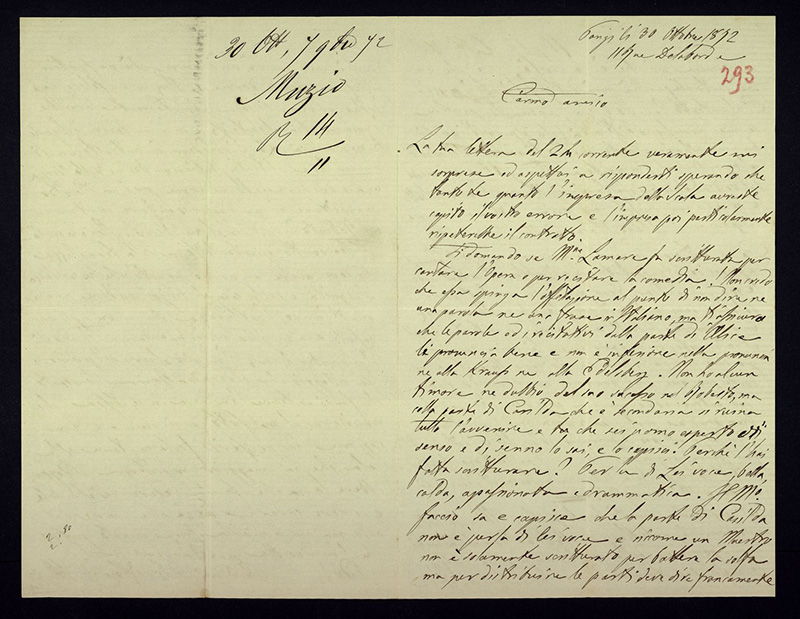 30 Ott, 7 9bre 72
Muzio
R 14
11
Parigi li 30 Ottobre 1872
11 Rue Delaborde
293
Carmo amico
La tua lettera del 24 corrente veramente mi
sorprese ed aspettai a risponderti sperando che
tanto te quanto l'impresa della Scala avreste
capito il vostro errore e l'impresa poi particolarmente
Ti domando se Mme Lamare fu scritturata per
cantare l'Opera o per recitare la comedia! Non credo
che essa spinga l' al punto di non dire ne
una parola ne una frase in Italiano, ma t'assicuro
che le parole ed i recitativi della parte di Alice
li pronunzia bene e non è inferiore nella pronunzia
ne alla Krauss ne alla Edelsberg. Non ho alcun
timore ne dubbio del suo successo nel Roberto, ma
colla parte di Casilda che è secondaria si rovina
tutto l'avvenire e tu che sei uomo esperto e di
senso e di senno lo sai, e lo capisci. Perchè l'hai
fatta scritturare? Per la di lei voce, bella,
calda, appassionata e drammatica. Il Mo.
Faccio sa e capisce che la parte di Casilda
non è per la di lei voce e siccome un Maestro
non è solamente scritturato per battere la solfa
ma per distribuire le parti deve dire francamente
2.50